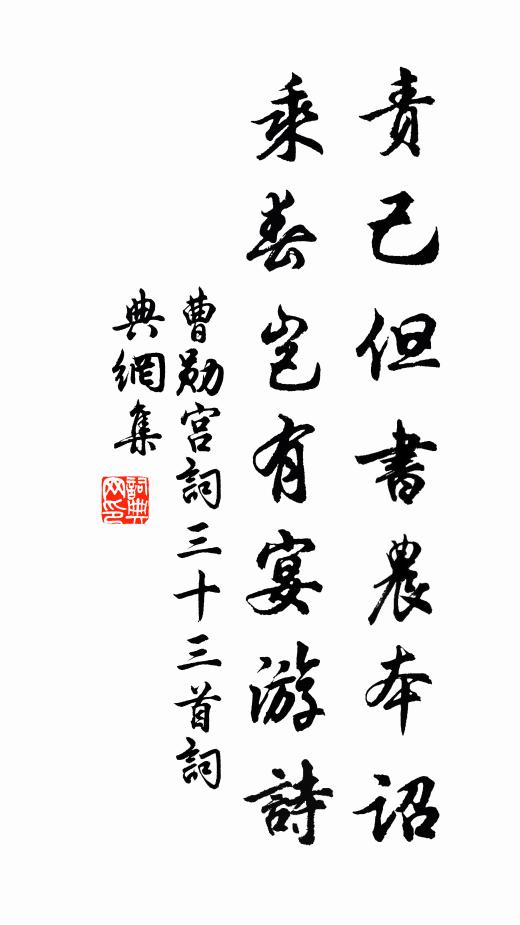 責己但書農本詔
乘春豈有宴游詩
曹勛宮詞三十三首詞
典網集
詞典網印